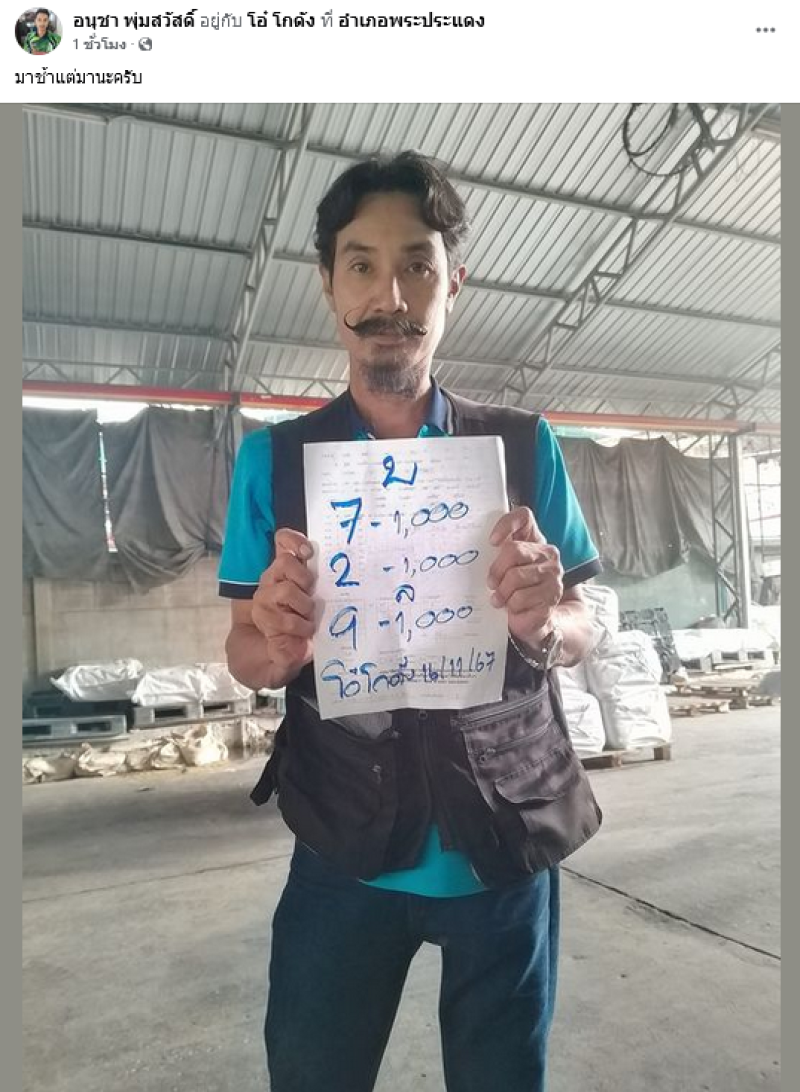 อนุชา พุ่มสวัสดิ์ อยู่กับ โอ๋ โกดัง ที่ อำเภอพระประแดง
1 ชั่วโมง
มาช้าแต่มานะครับ
บ
7 - 1,000
2 - 1,000
ล
9 - 1,000
โอ๋โกดัง 16/11/67